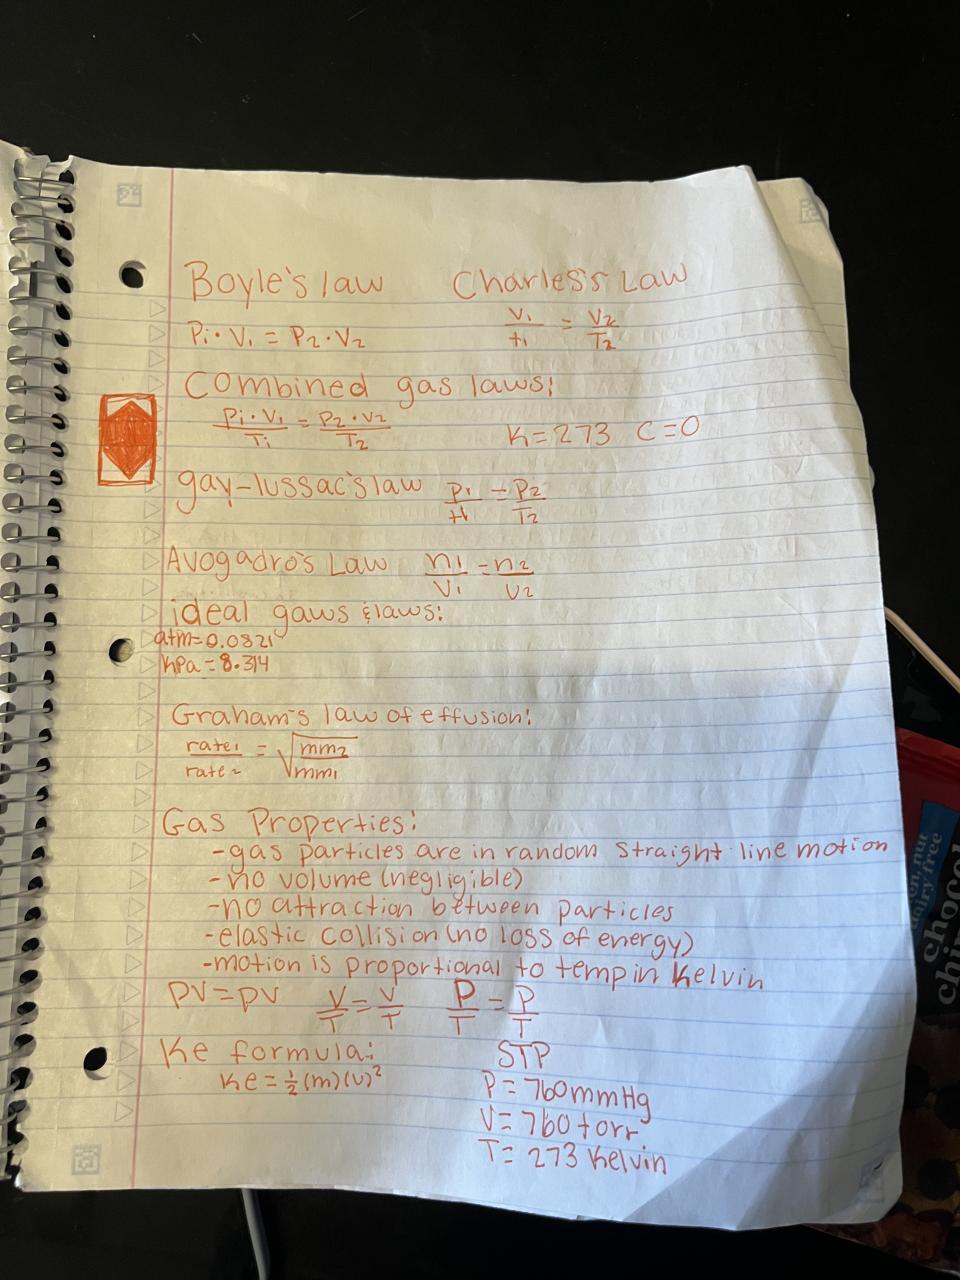 Boyle's law Charles's Law
P₁·V₁ = P₂·V₂ V₁/t₁ = V₂/T₂
Combined gas laws:
P₁·V₁/T₁ = P₂·V₂/T₂ K=273 C=0
gay-lussac's law P₁/t₁ = P₂/T₂
Avogadro's Law n1/V₁ = n2/V2
ideal gaws & laws:
atm=0.0821
kpa=8.314
Graham's law of effusion:
rate₁/rate₂ = √mm₂/mm₁
Gas Properties:
-gas particles are in random straight line motion
-no volume (negligible)
-no attraction between particles
-elastic collision (no loss of energy)
-motion is proportional to temp in Kelvin
PV=PV V/T=V/T P/T=P/T
Ke formula: STP
Ke=½(m)(v)² P=760mmHg
V=760 torr
T=273 Kelvin
dairy free